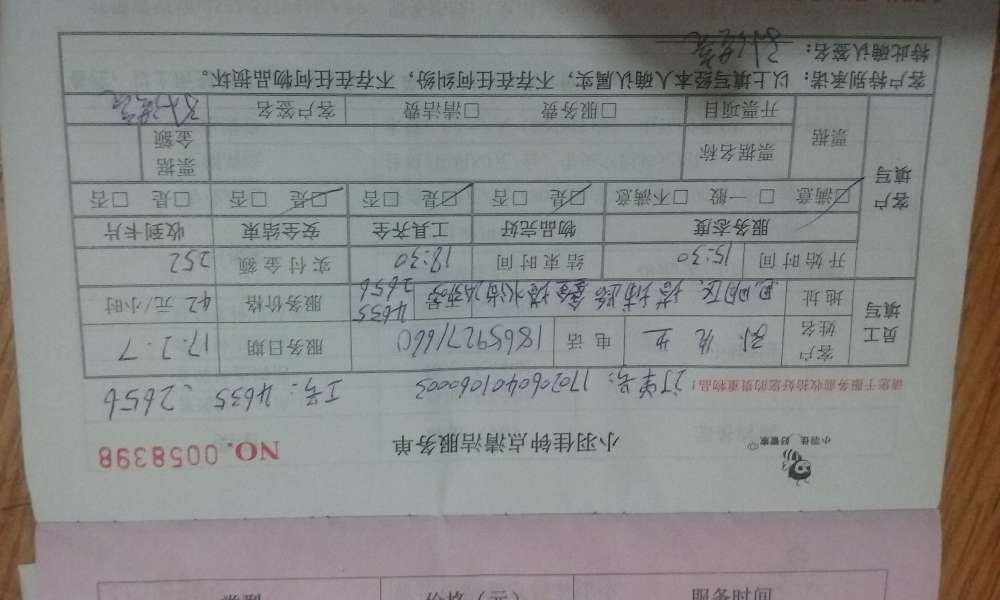 小羽佳 好管家
小羽佳钟点清洁服务单 NO.0058398
请您于服务前收拾好您的贵重物品! 订单号:1702060401060003 工号:4635、2656
员工填写 客户姓名 电话 18659271660 服务日期 17.2.7
地址 服务价格 42元/小时
4635
2656
开始时间 15:30 结束时间 18:30 实付金额 252
客户填写 服务态度 物品完好 工具齐全 安全结束 收到卡片
☑满意 □一般 □不满意 ☑是 □否 ☑是 □否 ☑是 □否 □是 □否
票据 票据名称 票据金额
开票项目 □服务费 □清洁费 客户签名
客户特别承诺:以上填写经本人确认属实,不存在任何纠纷,不存在任何物品损坏。
特此确认签名:
价格(元) 服务时间